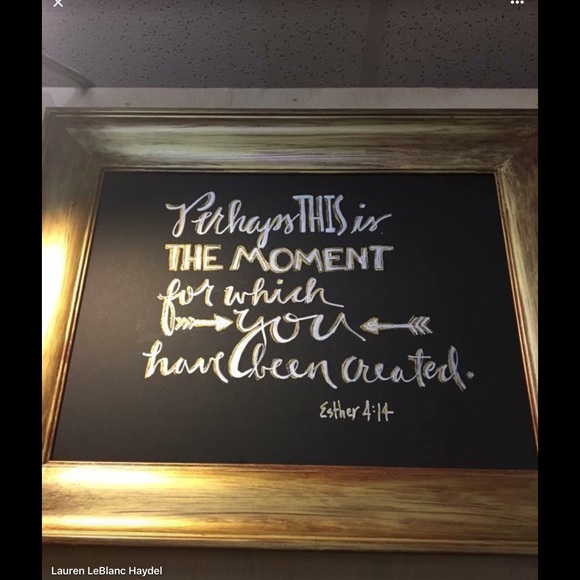 Perhaps THIS is
THE MOMENT
for which
you
have been created.
Esther 4:14
Lauren LeBlanc Haydel